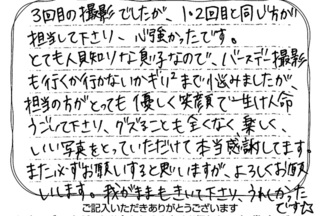 3回目の撮影でしたが、1、2回目と同じ方が
担当して下さり、心強かったです。
とても人見知りな息子なので、バースデー撮影
も行くか行かないかギリ²まで悩みましたが、
担当の方がとっても優しく笑顔で一生けん命
うごいて下さり、グズることも全くなく楽しく、
いい写真をとっていただけて本当感謝してます。
また必ずお願いすると思いますが、よろしくお願
いします。我がままもきいて下さり、うれしかった
ですな
ご記入いただきありがとうございます